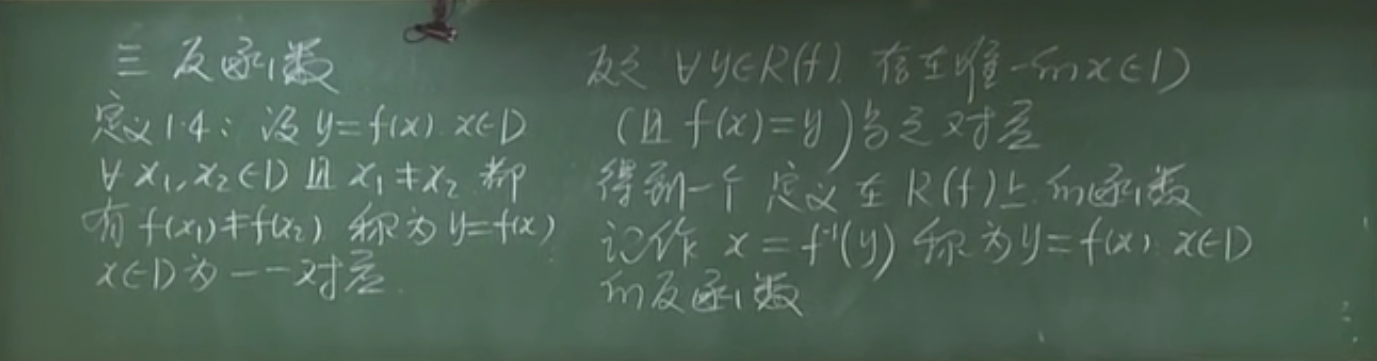 三 反函数
定义1.4：设 y=f(x). x∈D
∀ x₁,x₂∈D 且 x₁≠x₂ 都
有 f(x₁)≠f(x₂) 称为 y=f(x)
x∈D为一一对应.
反之 ∀y∈R(f). 存在唯一的x∈D
(且 f(x)=y)与之对应
得到一个 定义在 R(f)上的函数
记作 x=f⁻¹(y) 称为y=f(x). x∈D
的反函数